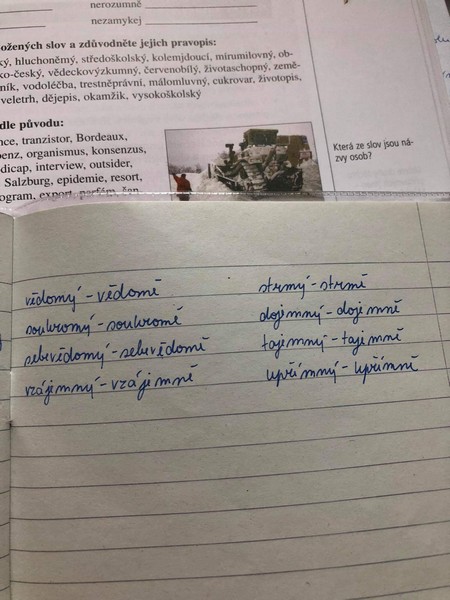 nerozumně
nezamykej
ožených slov a zdůvodněte jejich pravopis:
ký, hluchoněmý, středoškolský, kolemjdoucí, mirumilovný, ob-
ko-český, vědeckovýzkumný, červenobílý, životaschopný, země-
ník, vodoléčba, trestněprávní, málomluvný, cukrovar, životopis,
veletrh, dějepis, okamžik, vysokoškolský
dle původu:
nce, tranzistor, Bordeaux,
benz, organismus, konsenzus,
dicap, interview, outsider,
Salzburg, epidemie, resort,
ogram, export, parfém, šan
Která ze slov jsou ná-
zvy osob?
vědomý - vědomě
soukromý - soukromě
sebevědomý - sebevědomě
vzájimný - vzájimně
strmý - strmě
dojimný - dojimně
tajimný - tajimně
upřímný - upřímně